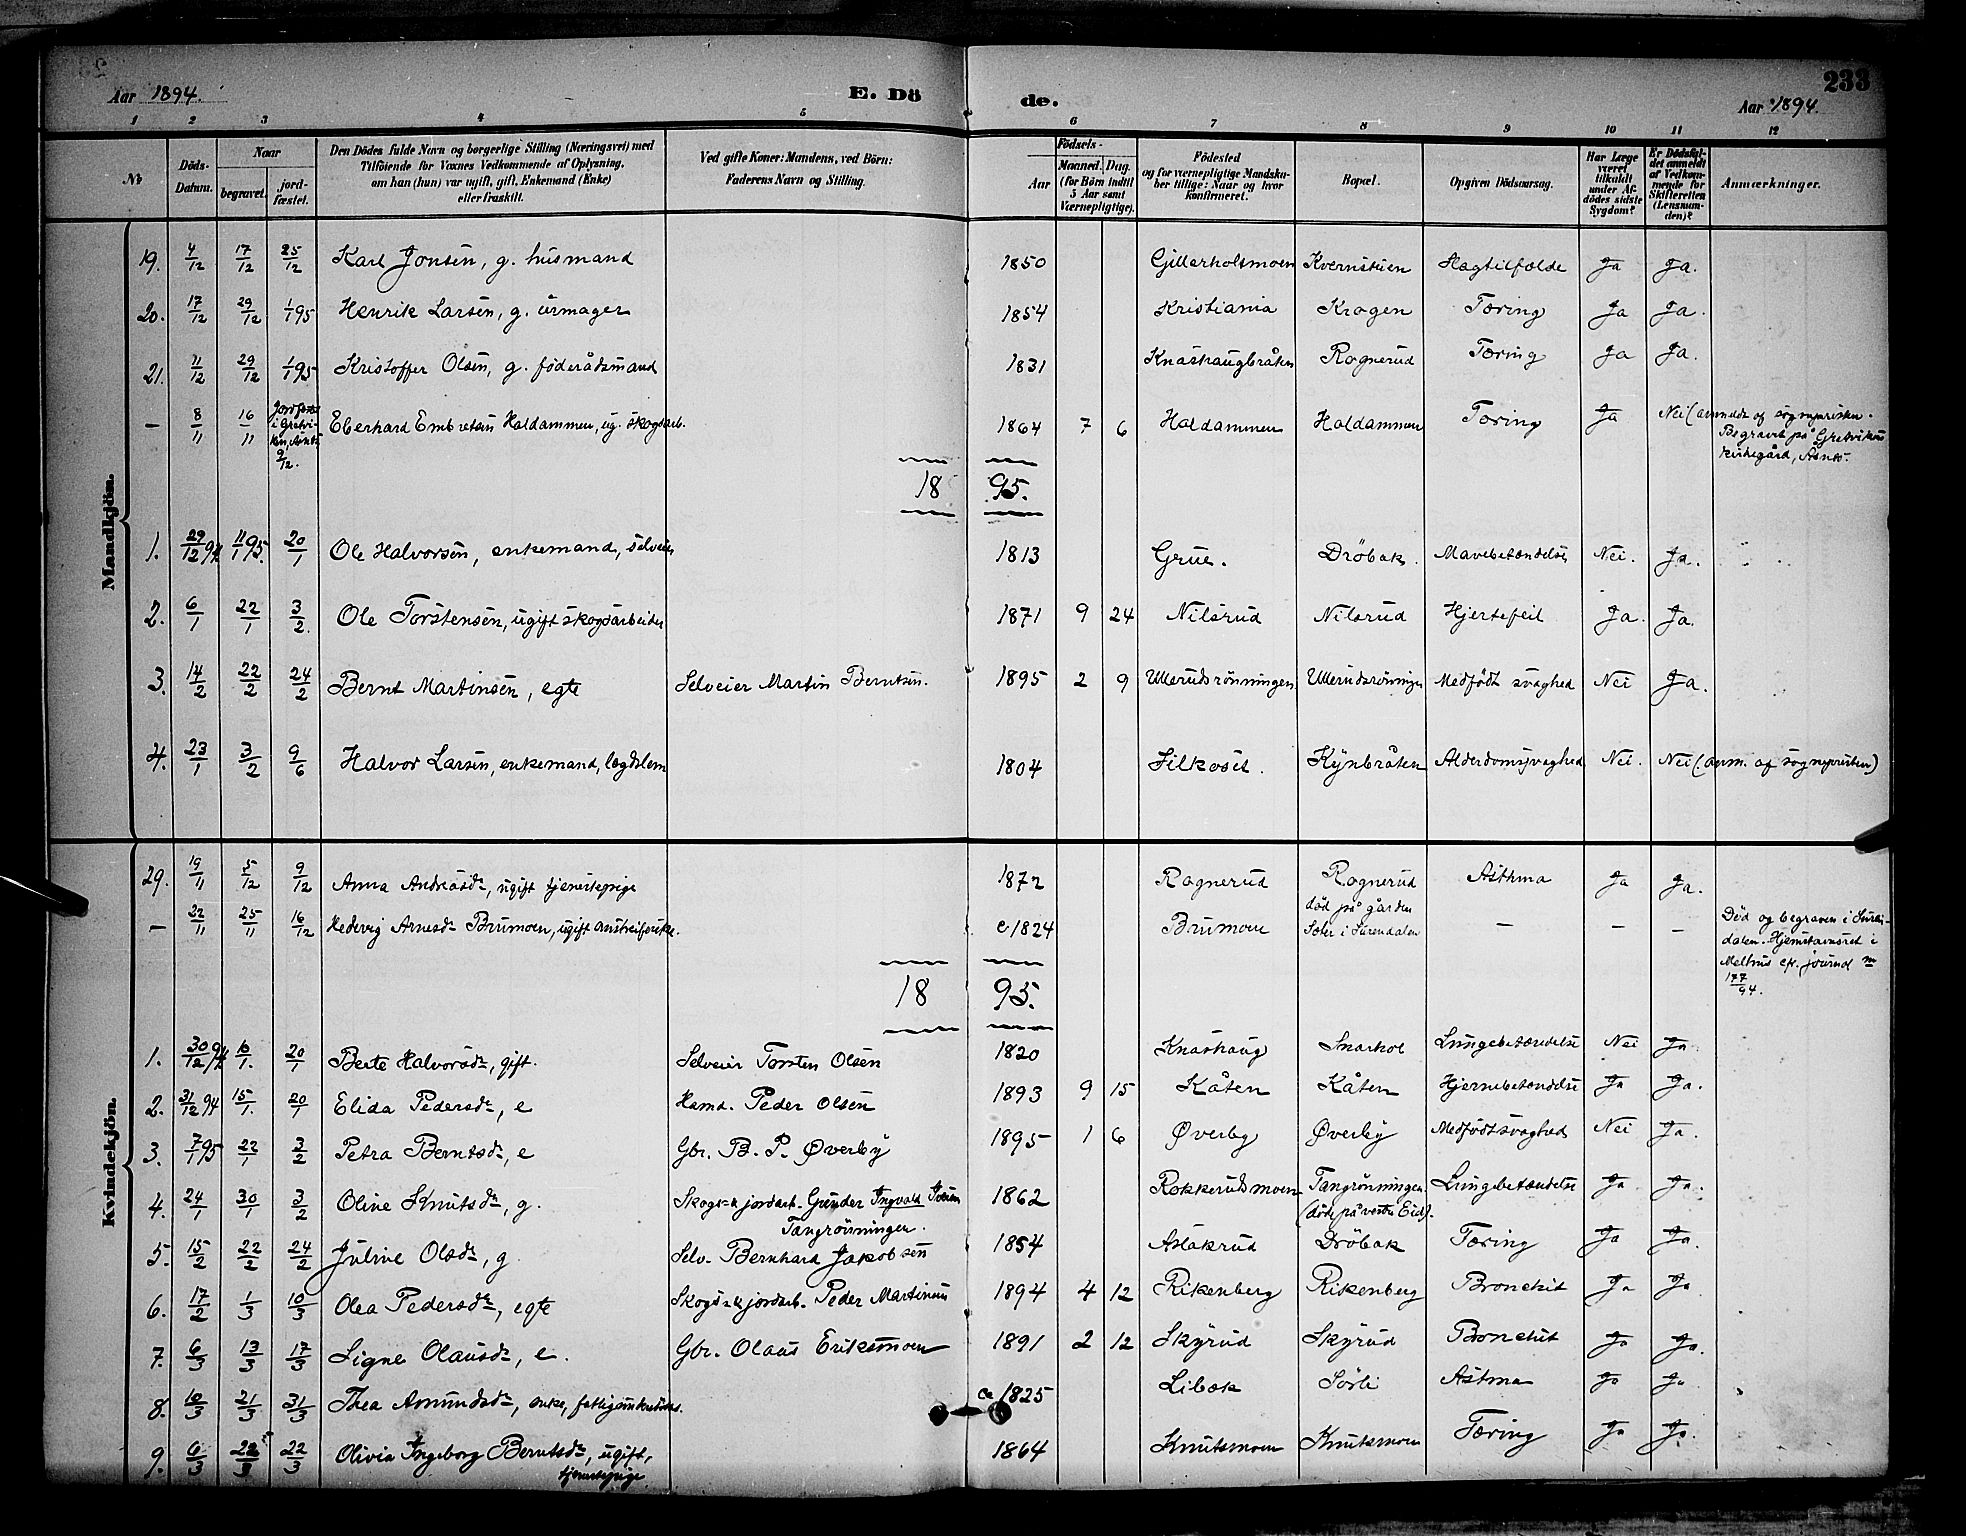 233
Aar 1894. E. Dö de. Aar 1894.
1 2 3 4 5 6 7 8 9 10 11 12
№ Döds-Datum. Naar begravet. jord-fæstet. Den Dödes fulde Navn og borgerlige Stilling (Næringsvei) med Tilföiende for Voxnes Vedkommende af Oplysning, om han (hun) var ugift, gift, Enkemand (Enke) eller fraskilt. Ved gifte Koner: Mandens, ved Börn: Faderens Navn og Stilling. Födsels- Aar Maaned. Dag. (for Börn indtil 5 Aar samt Værnepligtige). Födested og for værnepligtige Mandskaber tillige: Naar og hvor konfirmeret. Bopæl. Opgiven Dödsaarsag. Har Læge været tilkaldt under Afdödes sidste Sygdom? Er Dödsfaldet anmeldt af Vedkommende for Skifteretten (Lensmanden)? Anmærkninger.
Mandkjön.
19. 4/12 17/12 25/12 Karl Jonsen, g. husmand 1850 Gillerholsmoen Kvernstuen Hagtilfælde Ja Ja.
20. 17/12 29/12 1/1 95 Henrik Larsen, g. urmager 1854 Kristiania Krogen Tæring Ja Ja.
21. 11/12 29/12 1/1 95 Kristoffer Olsen, g. föderådsmand 1831 Knashaugbråten Rognerud Tæring Ja Ja.
— 8/11 16/11 Jordfæst i Gretvi-ken, Åsnes 9/12. Eberhard Embretsen Holdammen, ug. skogsarb. 1864 7 6 Holdammen Holdammen Tæring Ja Nei (anmeldt af sogneprästen.
Begravet på Gretviken
kirkegård, Åsnes.
18 95.
1. 29/12 94 11/1 95. 20/1 Ole Halvorsen, enkemand, selveier 1813 Grue. Dröbak. Mavebetændelse Nei. Ja.
2. 6/1 22/1 3/2. Ole Torstensen, ugift skogsarbeider 1871 9 24 Nilsrud Nilsrud Hjertefeil Ja. Ja.
3. 14/2 22/2 24/2 Bernt Martinsen, egte Selveier Martin Berntsen. 1895 2 9 Ullerudsrönningen Ullerudsrönningen Medfödt svaghed Nei Ja.
4. 23/1 3/2 9/6 Halvor Larsen, enkemand, lægdslem 1804 Silkoset. Kynbråten Alderdomssvaghed Nei. Nei (anm. af sogneprästen)
Kvindekjön.
29. 19/11 5/12 9/12 Anna Andreasdr, ugift tjenestepige 1872 Rognerud Rognerud Asthma Ja Ja.
— 22/11 25/11 16/12 Hedevig Arnesdr Brumoen, ugift omstreiferske. c 1824 Brumoen död på gården i Surendalen — — — Död og begraven i Suren-
dalen. Hjemstavnsret i
cfr. journal nr
177/94.
18 95.
1. 30/12 94 10/1. 20/1 Berte Halvorsdr, gift. Selveier Torsten Olsen 1820 Knashaug Snarhol Lungebetændelse Nei Ja
2. 31/12 94 15/1. 20/1 Elida Pedersdr, e Hsmd. Peder Olsen 1893 9 15 Kåten Kåten Hjernebetændelse Ja Ja.
3. 7/1 95 22/1 3/2 Petra Berntsdr, e Gbr. B. P. Øverby 1895 1 6 Øverby Øverby Medfödt svaghed Nei Ja.
4. 24/1 30/1 3/2 Oline Knutsdr, g. Skogs- & jordarb. Gunder Ingvald Iversen 1862 Rokkerudsmoen Tangrönningen. Lungebetændelse Ja Ja.
Tangrönningen. (döde på vestre Eid).
5. 15/2 22/2 24/2 Juline Olsdr, g. Selv. Bernhard Jakobsen 1854 Aslakrud Dröbak Tæring Ja Ja.
6. 17/2 1/3 10/3 Olea Pedersdr, egte Skogs- & jordarb. Peder Martinsen 1894 4 12 Rikenberg Rikenberg Bronchit Ja Ja
7. 6/3 13/3 17/3 Signe Olausdr, e. Gbr. Olaus Eriksmoen 1891 2 12 Skyrud Skyrud Bronchit Ja Ja.
8. 10/3 21/3 31/3 Thea Amundsdr, enke, ca 1825 Libak Sörli Astma Ja Ja
9. 6/3 22/3 22/3 Olivia Ingeborg Berntsdr, ugift, 1864 Knutsmoen Knutsmoen Tæring Ja Ja.
tjenestepige